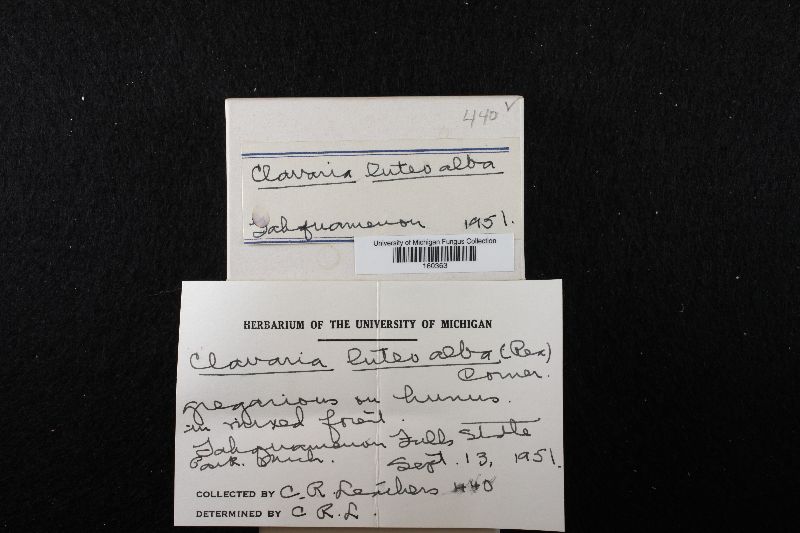 440 ✓
Clavaria luteo alba
Tahquamenon 1951.
University of Michigan Fungus Collection
160363
HERBARIUM OF THE UNIVERSITY OF MICHIGAN
Clavaria luteo alba (Rea)
Corner.
gregarious on humus.
in mixed forest.
Tahquamenon Falls State
Park. Mich. Sept. 13, 1951.
COLLECTED BY C. R. Leathers 440
DETERMINED BY C R. L.